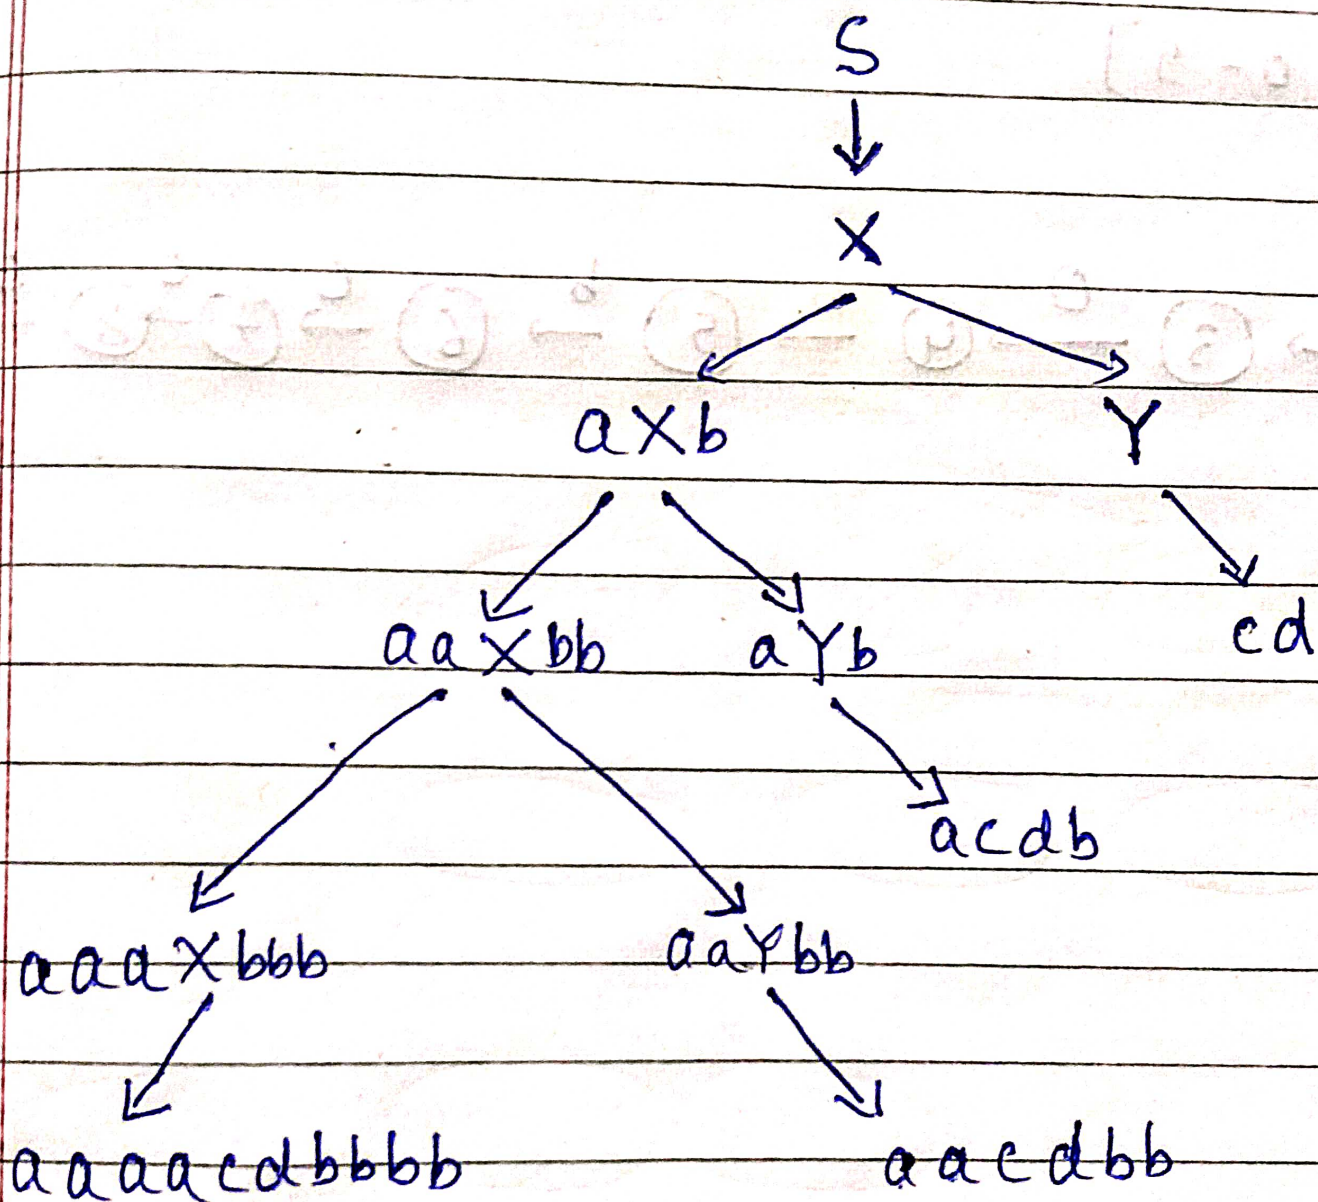 S
X
aXb Y
aaXbb aYb cd
acdb
aaaXbbb aaYbb
aaaacdbbbb aacdbb